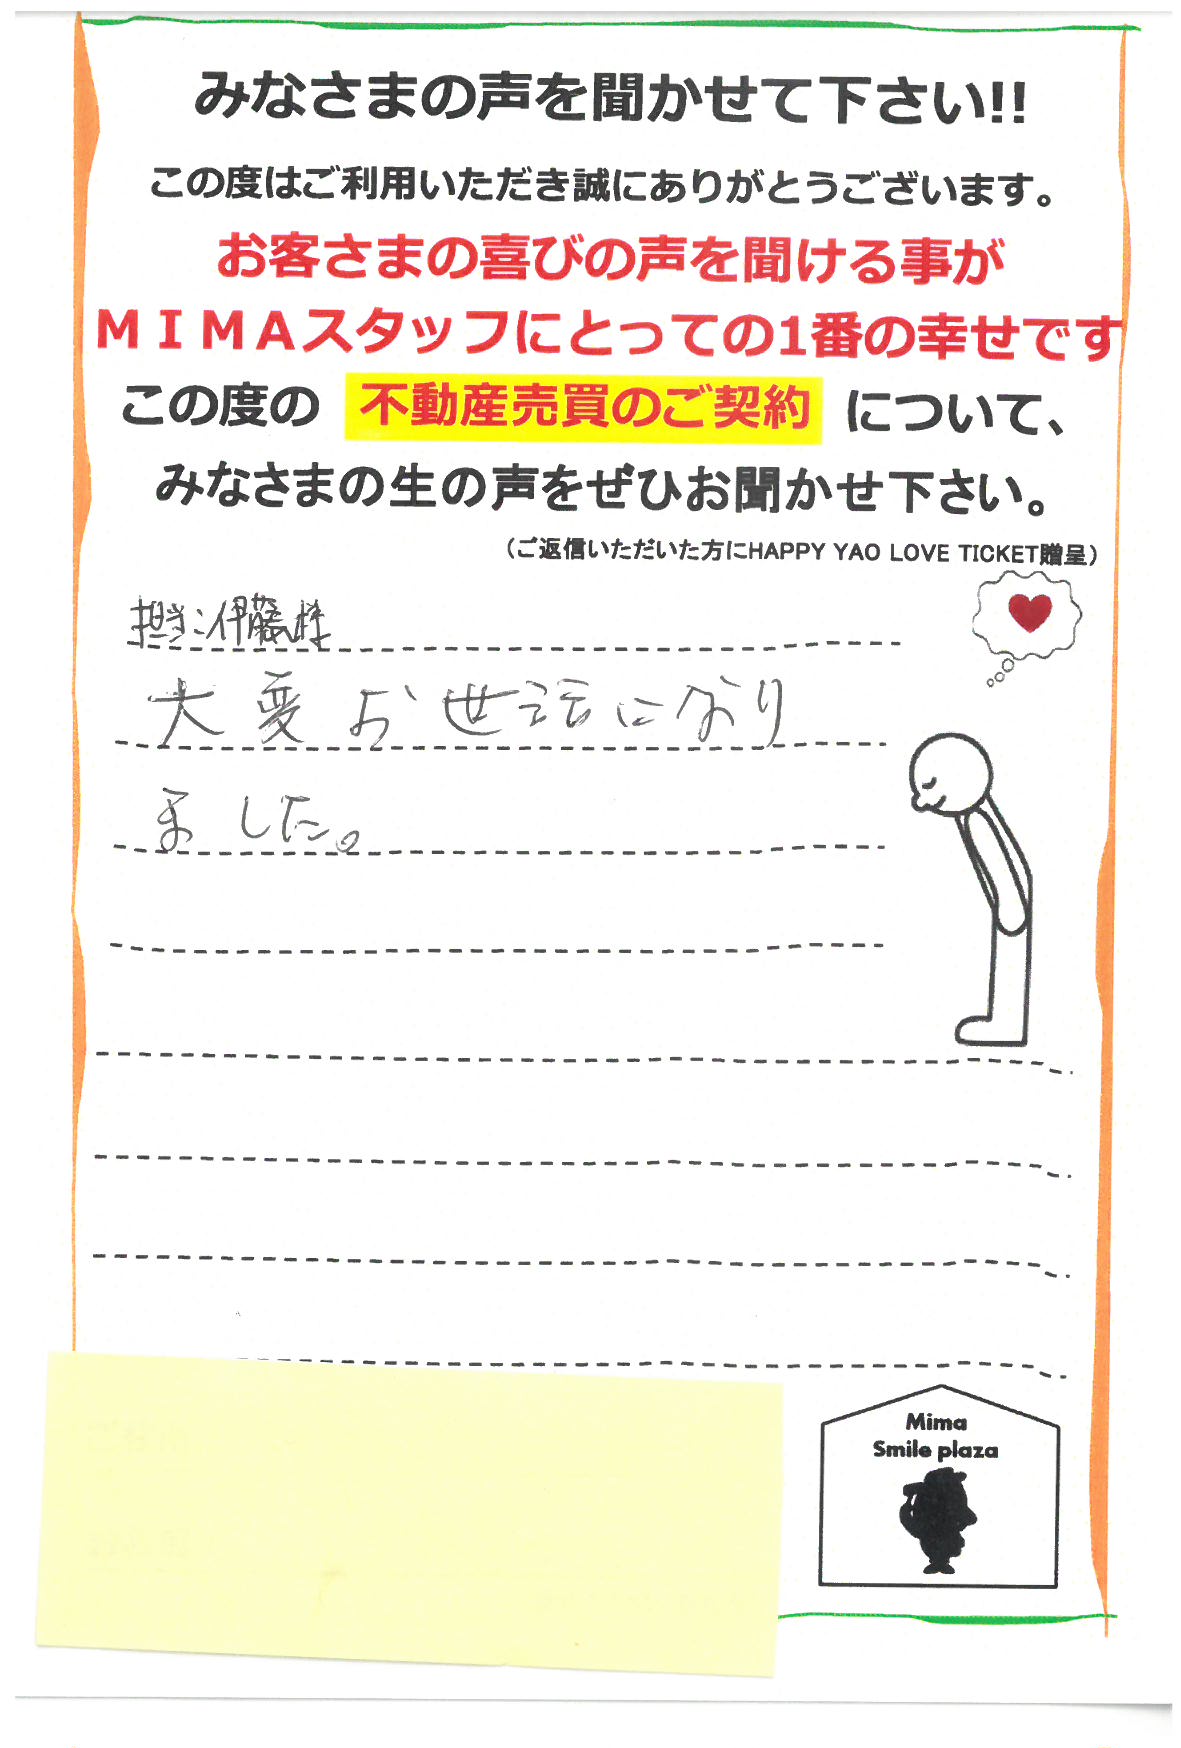 みなさまの声を聞かせて下さい!!
この度はご利用いただき誠にありがとうございます。
お客さまの喜びの声を聞ける事が
ＭＩＭＡスタッフにとっての1番の幸せです
この度の 不動産売買のご契約 について、
みなさまの生の声をぜひお聞かせ下さい。
（ご返信いただいた方にHAPPY YAO LOVE TICKET贈呈）
担当：伊藤様
大変お世話になり
ました。
Mima
Smile plaza